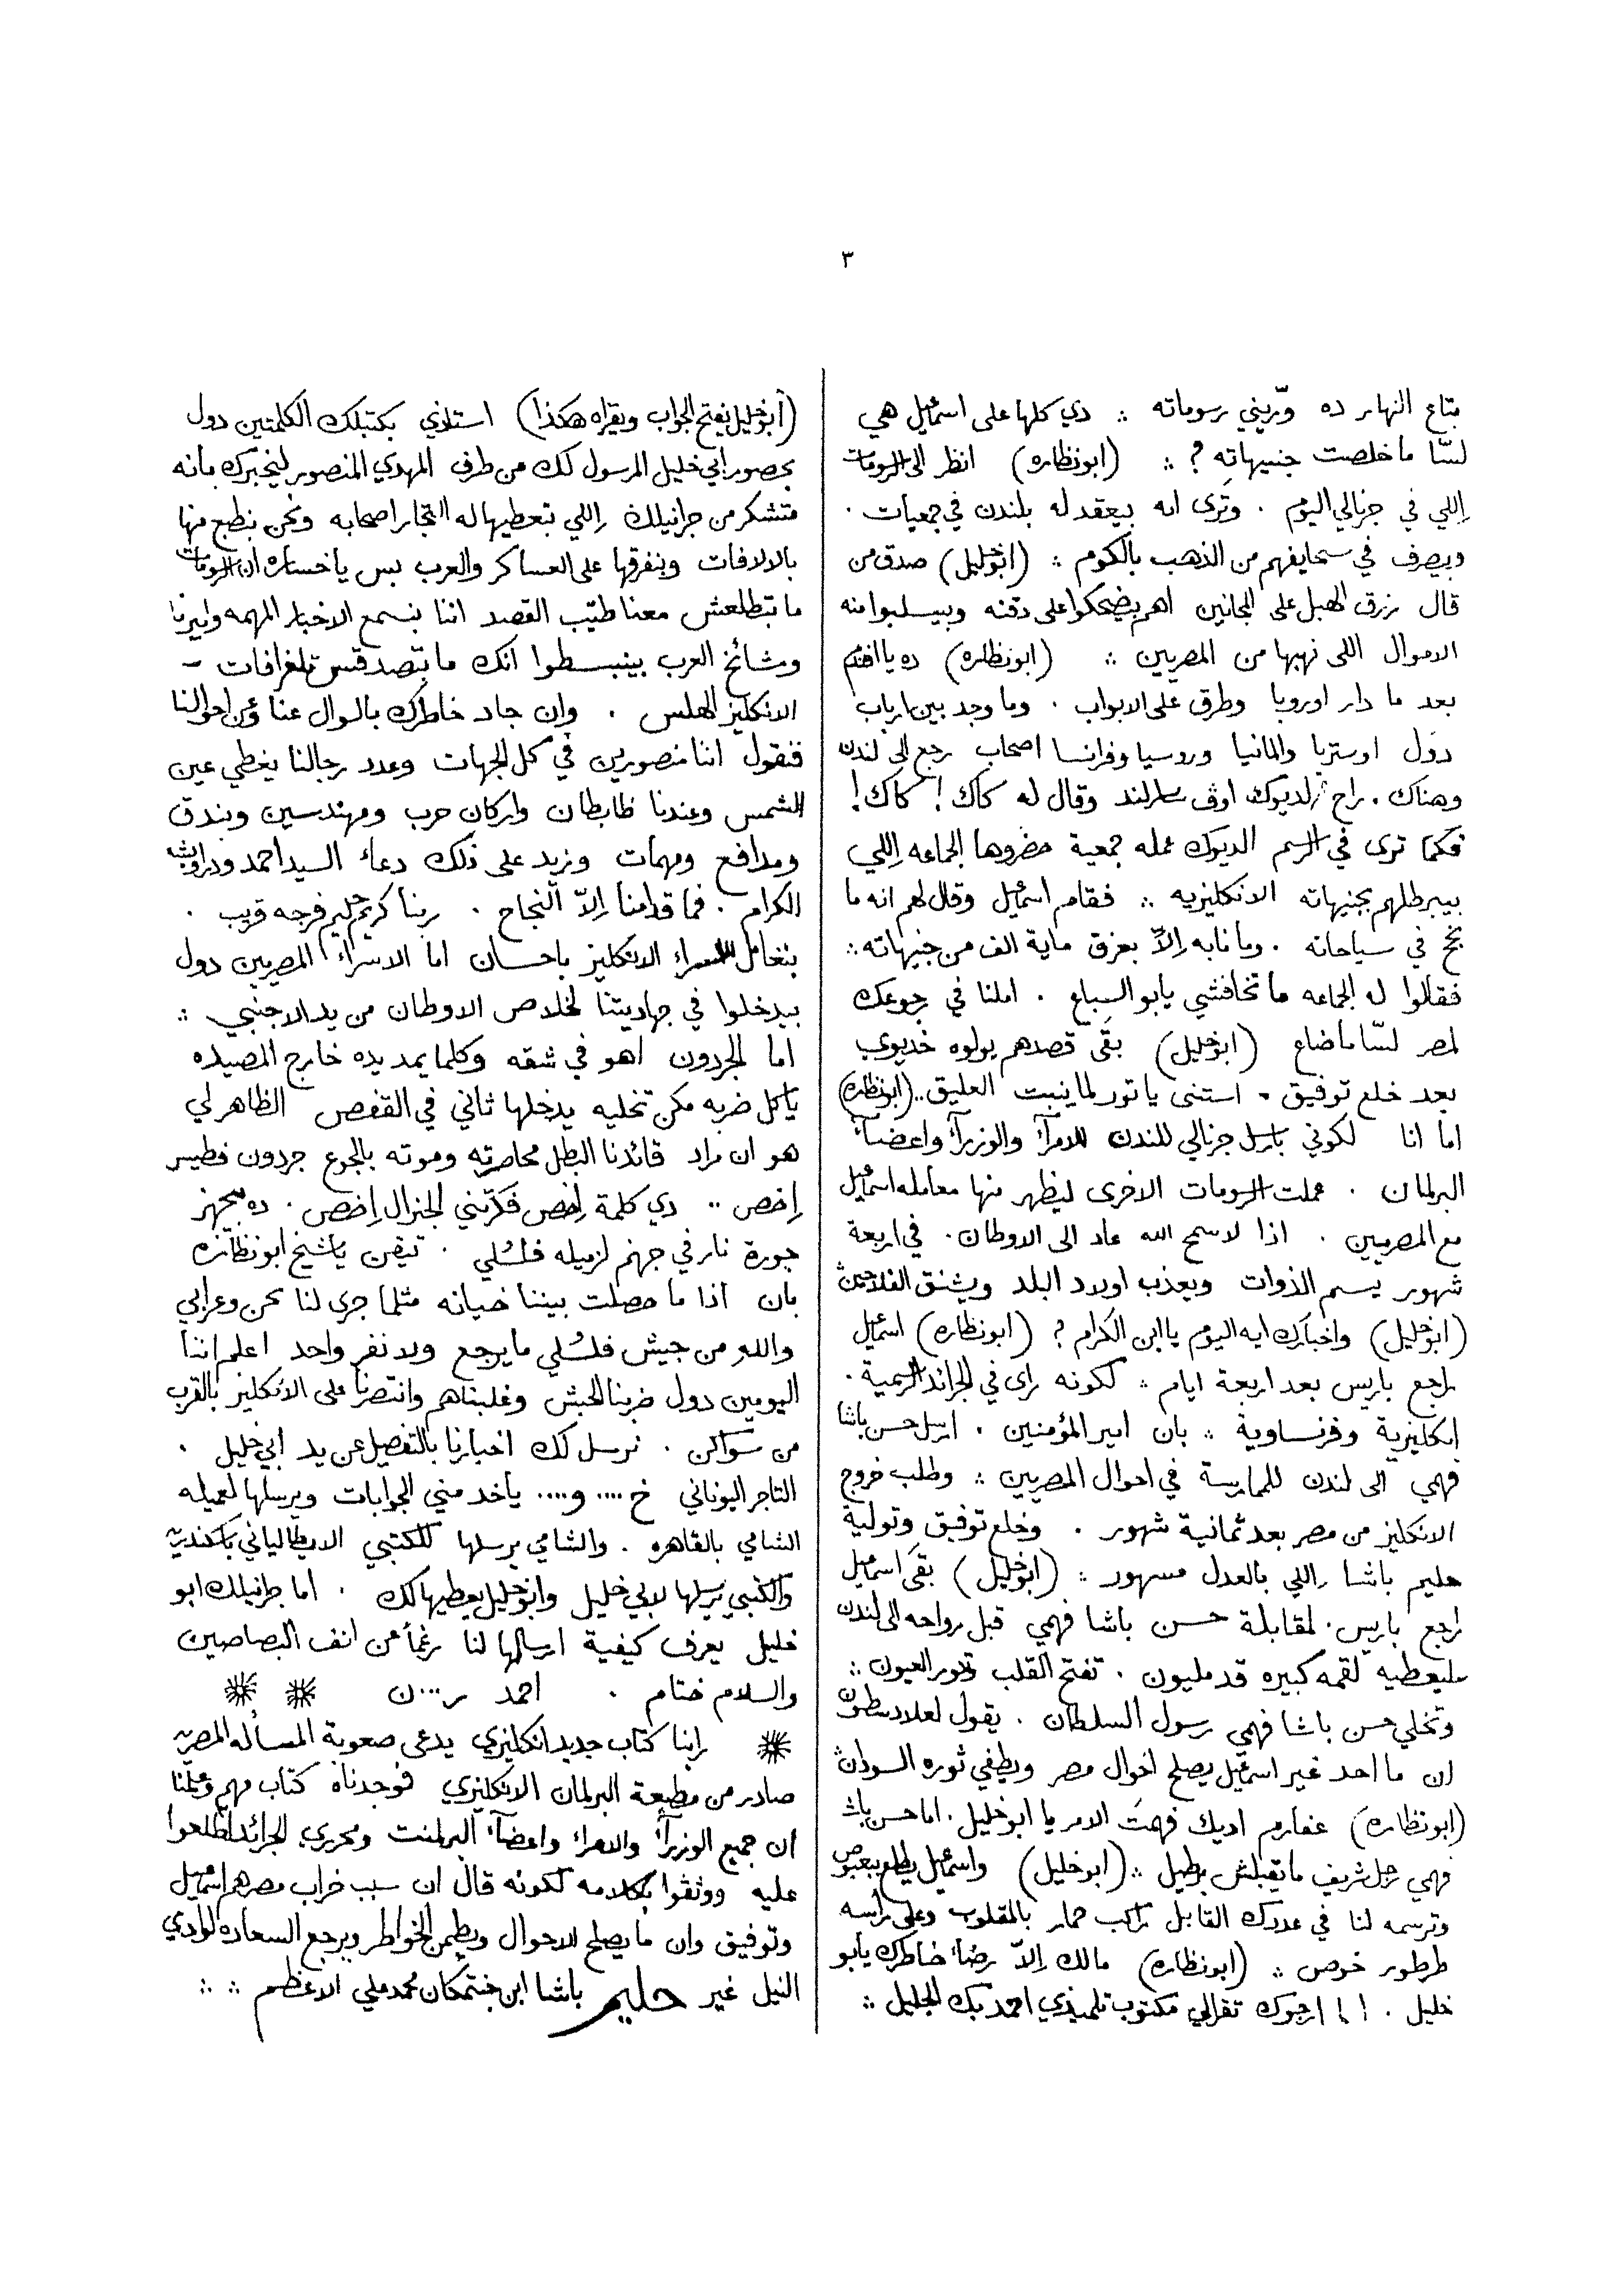 ٣
بتاع النهار ده ورّيني رسوماته ∴ دي كلها على اسمعيل هي
لسّا ما خلصت جنيهاته ؟ ∴ (ابو نظاره) انظر الى الرسومات
اِللي في جرنالي اليوم . وترى انه بيعقد له بلندن في جمعيات .
وبيصرف في سحايفهم من الذهب بالكوم ∴ (ابو خليل) صدق من
قال رزق الهبل على المجانين اهم بيضحكوا على دقنه وبيسلبوا منه
الاموال اللى نهبها من المصريين ∴ (ابو نظاره) ده يا افندم
بعد ما دار اوروبا وطرق على الابواب . وما وجد بين ارباب
دول اوستريا والمانيا وروسيا وفرانسا اصحاب رجع الى لندن
وهناك . راح لديوك اوف سذرلند وقال له كاك ! كاك !
فكما ترى في الرسم الديوك عمله جمعية حضروها الجماعه اِللي
بيبرطلهم بجنيهاته الانكليزيه ∴ فقام اسمعيل وقال لهم انه ما
نجح في سياحاته . وما نابه اِلاّ بعزق ماية الف من جنيهاته ∴
فقالوا له الجماعه ما تخافشي يابو السباع . املنا في رجوعك
لمصر لسّا ما ضاع (ابو خليل) بقى قصدهم يولوه خديوي
بعد خلع توفيق . استنى يا تور لما ينبت العليق .. (ابو نظاره)
اما انا لكوني بارسل جرنالي للندن للامرآء والوزرآء واعضآء
البرلمان . عملت الرسومات الاخرى ليظهر منها معامله اسمعيل
مع المصريين . اذا لا سمح الله عاد الى الاوطان . في اربعة
شهور يسم الذوات ويعذب اولاد البلد ويشنق الفلاحين
(ابو خليل) واخبارك ايه اليوم يا ابن الكرام ؟ (ابو نظاره) اسمعيل
راجع باريس بعد اربعة ايام ∴ لكونه راى في الجرائد الرسمية .
انكليزية وفرنساوية ∴ بان امير المؤمنين . ارسل حسن باشا
فهمي الى لندن للممارسة في احوال المصريين ∴ وطلب خروج
الانكليز من مصر بعد ثمانية شهور . وخلع توفيق وتولية
حليم باشا اِللي بالعدل مسهور ∴ (ابو خليل) بقى اسمعيل
راجع باريس . لمقابلة حسن باشا فهمي قبل رواحه الى لندن
ليعطيه لقمه كبيره قد مليون . تفتح القلب وتدور العيون ∴
وتخلي حسن باشا فهمي رسول السلطان . يقول لغلادسطون
ان ما احد غير اسمعيل يصلح احوال مصر ويطفي ثوره السودان
(ابو نظاره) عفارم اديك فهمت الامر يا ابو خليل . اما حسن باشا
فهمي رجل شريف ما يقبلش برطيل ∴ (ابو خليل) واسمعيل يطلع ببعبوص
وترسمه لنا في عددك القابل راكب حمار بالمقلوب وعلى رأسه
طرطور خوص ∴ (ابو نظاره) مالك اِلاّ رضاء خاطرك يابو
خليل . ! ! ارجوك تقرالي مكتوب تلميذي احمد بك الجليل ∴
(ابو خليل يفتح الجواب ويقراه هكذا) استاذي بكتبلك الكلمتين دول
بحضور ابي خليل المرسول لك من طرف المهدي المنصور ليخبرك بانه
متشكر من جرانيلك اِللي بتعطيها له التجار اصحابه ونحن بنطبع منها
بالالافات وبنفرقها على العساكر والعرب بس يا خساره ان الرسومات
ما بتطلعش معنا طيّب القصد اننا بنسمع الاخبار المهمه واميرنا
ومشائخ العرب بينبسطوا انك ما بتصدقش تلغرافات -
الانكليز الهلس . وان جاد خاطرك بالسوال عنا وعن احوالنا
فنقول اننا منصورين في كل الجهات وعدد رجالنا يغطي عين
الشمس وعندنا ظابطان واركان حرب ومهندسين وبندق
ومدافع ومهمات ونزيد على ذلك دعاء السيد احمد ودراويشه
الكرام . فما قدامنا اِلاّ النجاح . ربنا كريم حليم فرجه قريب .
بنعامل الاسراء الانكليز باحسان اما الاسراء المصريين دول
بيدخلوا في جهاديتنا لخلاص الاوطان من يد الاجنبي ∴
اما الجردون اهو في شقه وكلما يمد يده خارج المصيده
ياكل ضربه مكن تخليه يدخلها ثاني في القفص الظاهر لي
هو ان مراد قائدنا البطل محاصرته وموته بالجوع جردون فطيس
اِخص .. دي كلمة اِخص فكرتني الجنرال اِخص . ده بيجهز
جورة نار في جهنم لزميله فلسلي . تيقن يا شيخ ابو نظاره
بان اذا ما حصلت بيننا خيانه مثلما جرى لنا نحن وعرابي
والله من جيش فلسلي ما يرجع ولا نفر واحد اعلم اننا
اليومين دول ضربنا الحبش وغلبناهم وانتصرنا على الانكليز بالقرب
من سواكن . نرسل لك اخبارنا بالتفصيل عن يد ابي خليل .
التاجر اليوناني خ .... و .... ياخد مني الجوابات ويرسلها لعميله
الشامي بالقاهره . والشامي يرسلها للكتبي الايطالياني باسكندريه
والكتبي يرسلها لابي خليل وابو خليل يعطيها لك . اما جرانيلك ابو
خليل يعرف كيفية ارسالها لنا رغماً من انف البصاصين
والسلام ختام . احمد ر ... ن
راينا كتاب جديد انكليزي يدعى صعوبة المسأله المصريه
صادر من مطبعة البرلمان الانكليزي فوجدناه كتاب مهم وعلمنا
ان جميع الوزرآء والامراء واعضآء البرلمنت ومحرري الجرائد اطلعوا
عليه ووثقوا بكلامه لكونه قال ان سبب خراب مصر هم اسمعيل
وتوفيق وان ما يصلح الاحوال ويطمن الخواطر ويرجع السعاده لوادي
النيل غير حليم باشا ابن جنتمكان محمد علي الاعظم ∴ ∴